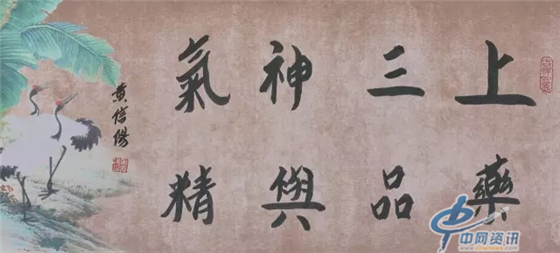 上藥
三品
神與
氣精
黄信陽
中网资讯